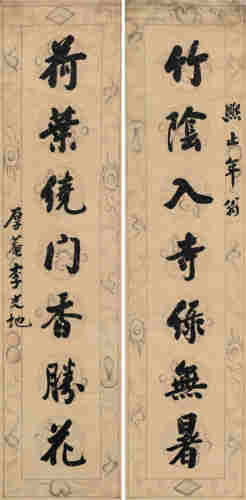 熙止年翁
竹陰入寺綠無暑
荷葉繞门香勝花
厚菴李光地